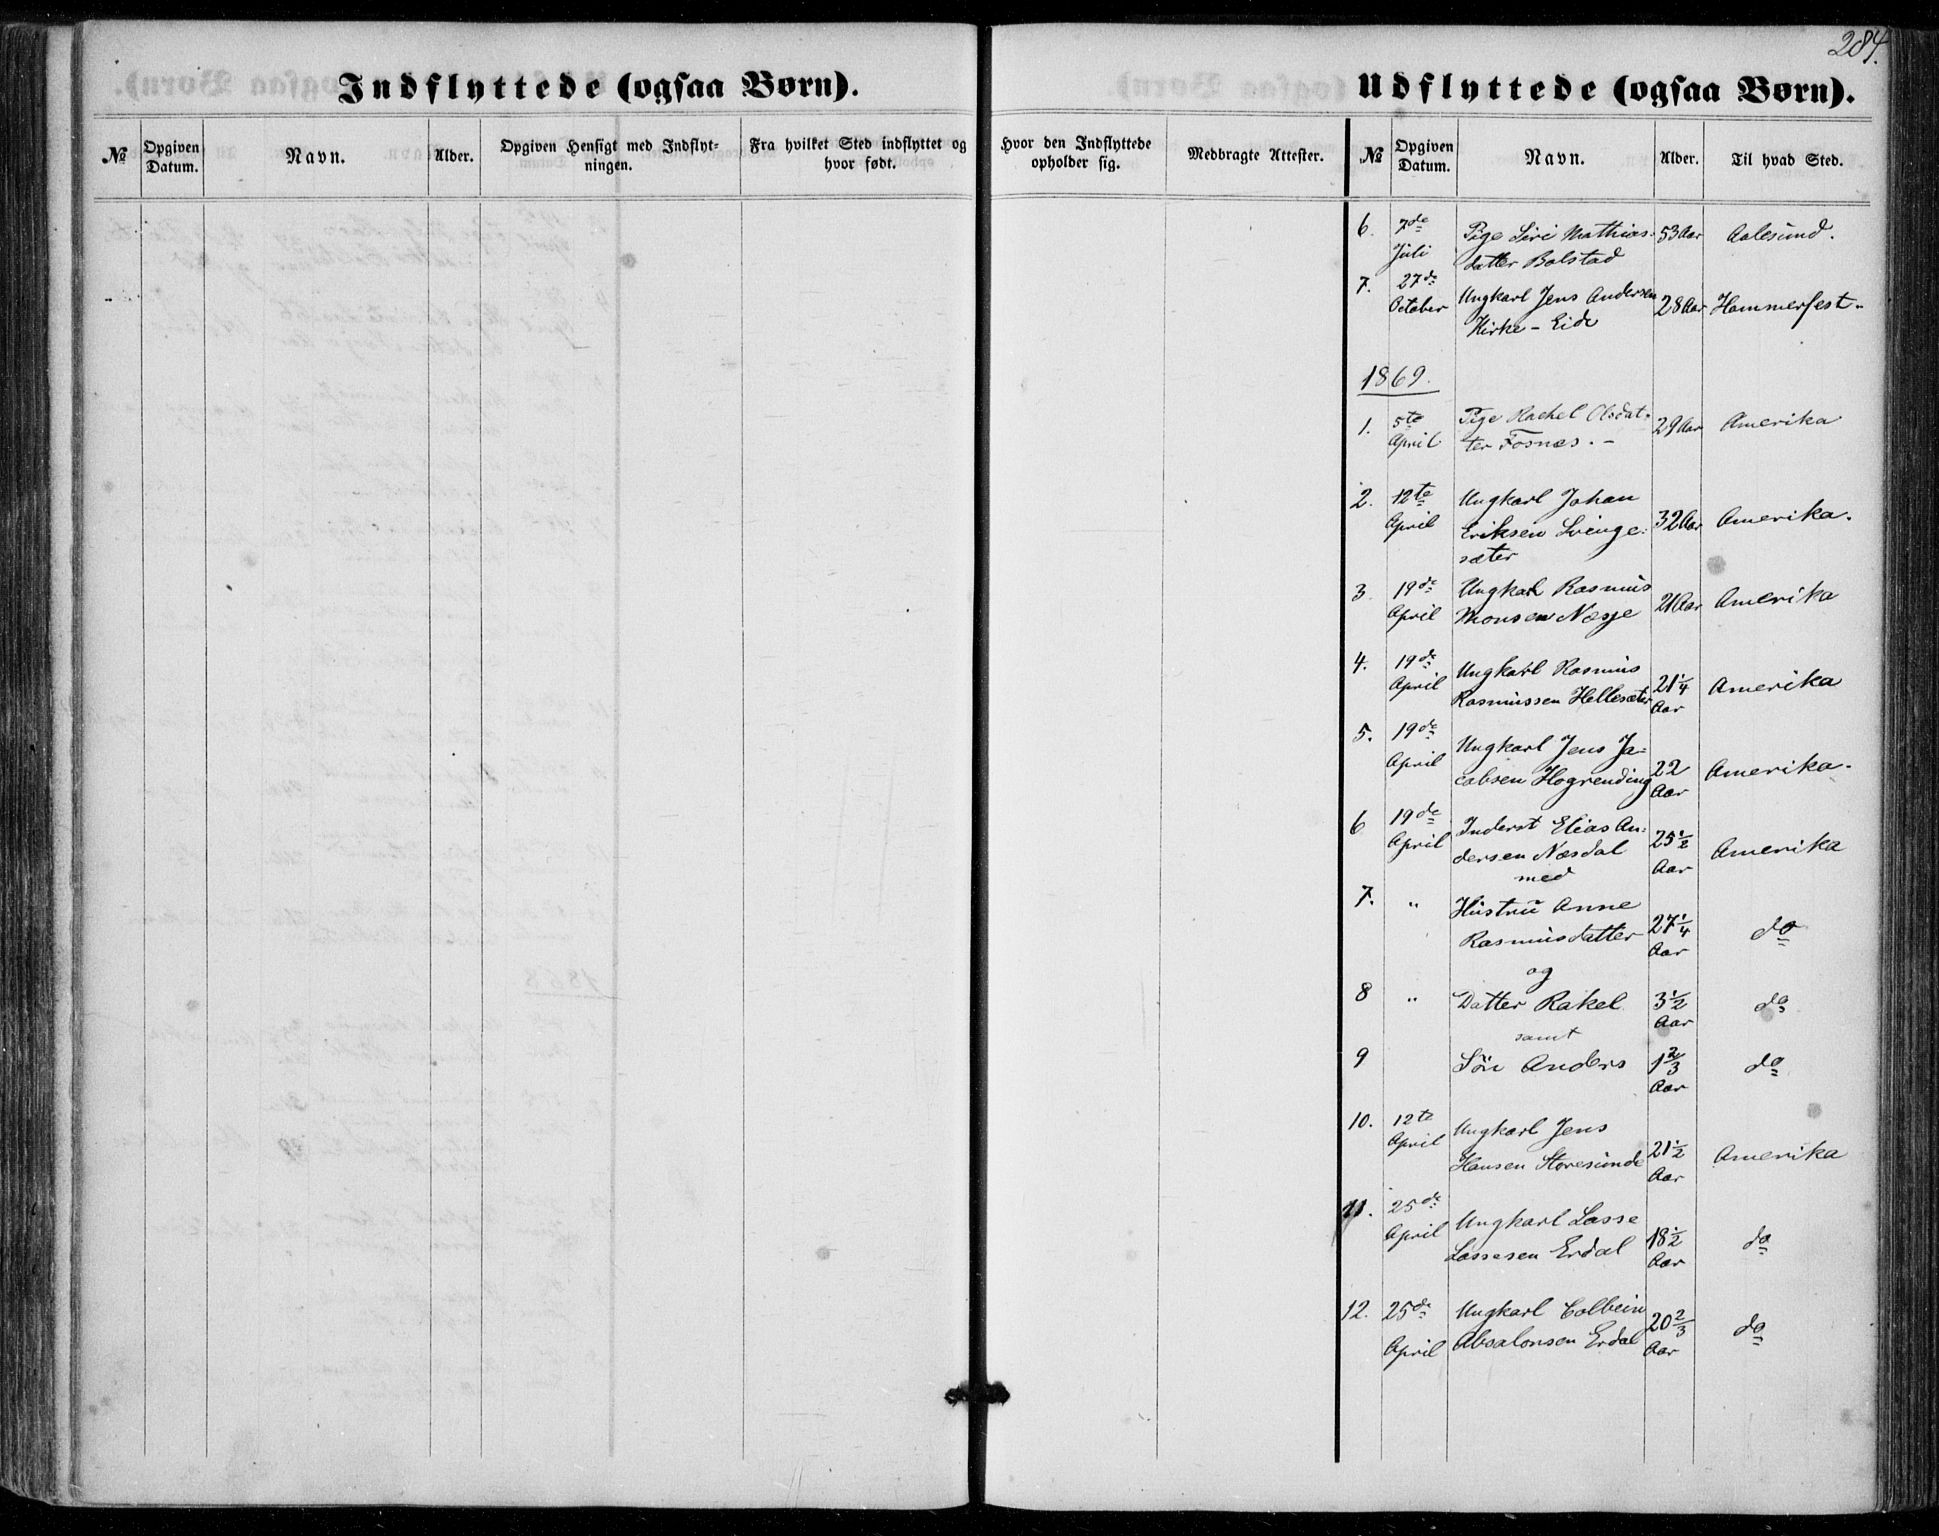 284.
Indflyttede (ogsaa Børn).
Udflyttede (ogsaa Børn).
№ Opgiven Datum. Navn. Alder. Opgiven Hensigt med Indflyt-ningen. Fra hvilket Sted indflyttet og hvor født. Hvor den Indflyttede opholder sig. Medbragte Attester. № Opgiven Datum. Navn. Alder. Til hvad Sted.
6. 7de Pige Siri Mathias- 53 Aar Aalesund.
Juli datter Bolstad
7. 27de Ungkarl Jens Andersen 28 Aar Hammerfest.
October Kirke-Eide
1869.
1. 5te Pige Rachel Olsdat- 29 Aar Amerika
April ter Fosnæs.
2. 12te Ungkarl Johan
April Eriksen Svinge- 32 Aar Amerika.
sæter
3 19de Ungkarl Rasmus
April Monsen Nesje 21 Aar Amerika
4. 19de Ungkarl Rasmus
April Rasmussen Hellesæter 21 1/4 Aar Amerika
5. 19de Ungkarl Jens Ja-
April cobsen Hogrending 22 Aar Amerika.
6 19de Inderst Elias An-
April dersen Næsdal 25 1/2 Aar Amerika
med
7. " Hustru Anne
Rasmusdatter 27 1/4 Aar do
og
8 " Datter Rakel 3 1/2 Aar do
samt
9 Søn Anders 1 2/3 Aar do
10. 12te Ungkarl Jens
April Hansen Storesunde 21 1/2 Aar Amerika
11. 25de Ungkarl Lasse
April Lassesen Erdal 18 1/2 Aar do
12. 25de Ungkarl Colbein
April Absalonsen Erdal 20 2/3 Aar do